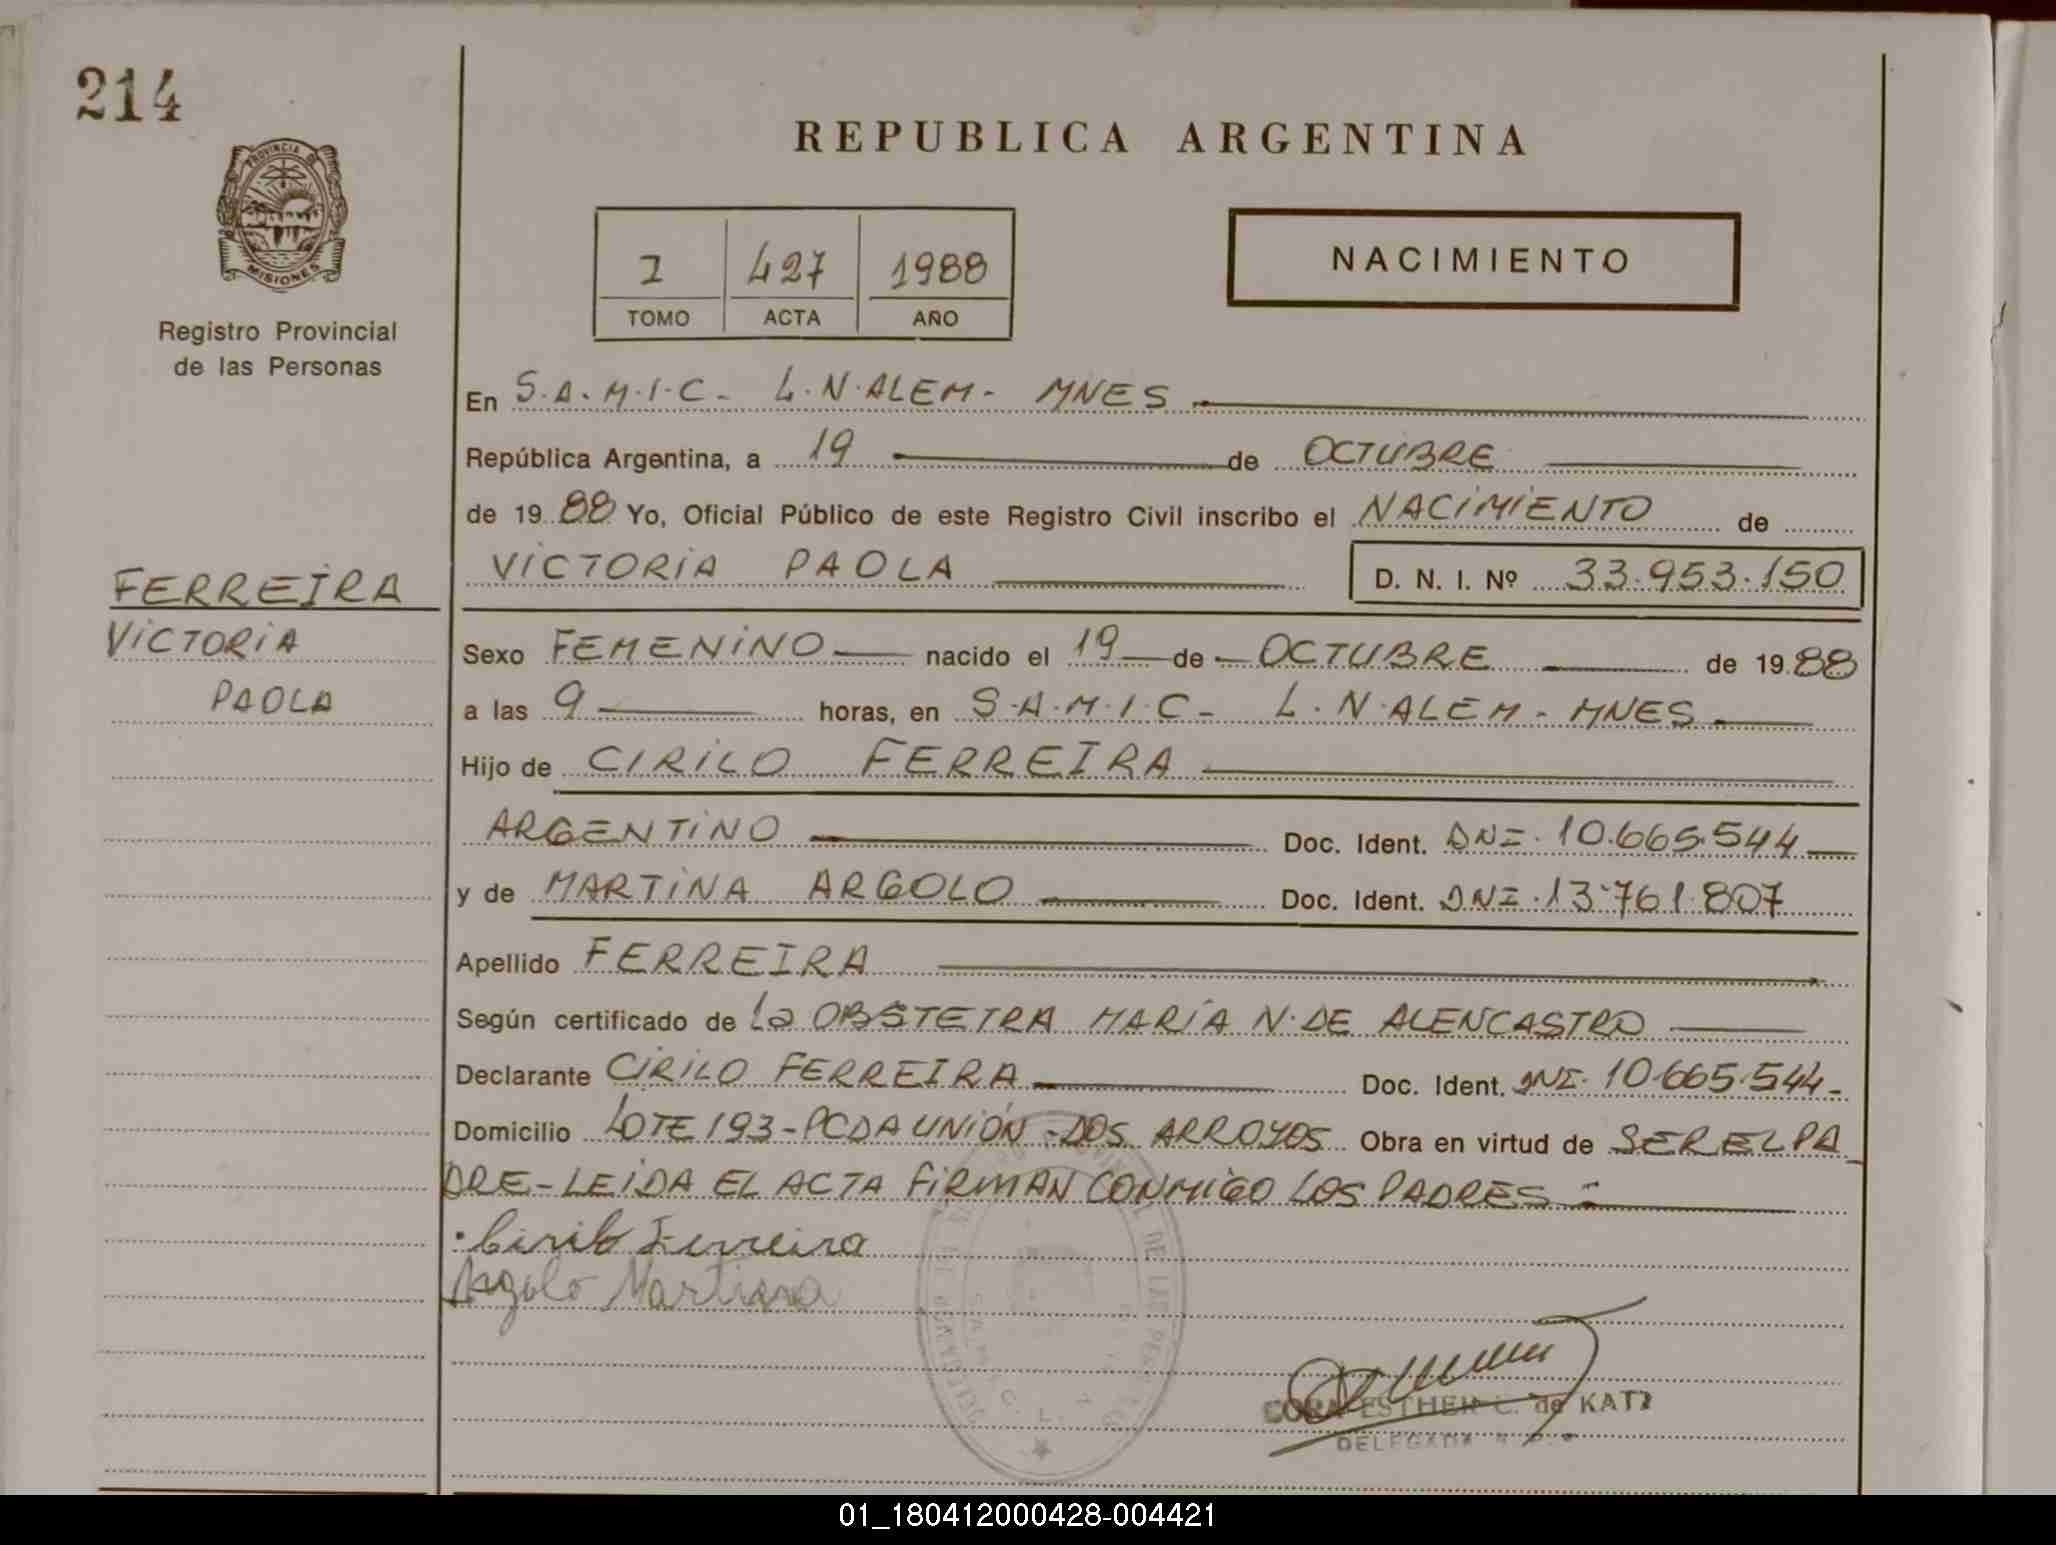 214
REPUBLICA ARGENTINA
PROVINCIA DE
MISIONES
Registro Provincial
de las Personas
I 427 1988
TOMO ACTA AÑO
NACIMIENTO
En S.A.M.I.C- L.N.ALEM- MNES
República Argentina, a 19 de OCTUBRE
de 1988 Yo, Oficial Público de este Registro Civil inscribo el NACIMIENTO de
VICTORIA PAOLA D. N. I. Nº 33.953.150
FERREIRA
VICTORIA
PAOLA
Sexo FEMENINO nacido el 19 de OCTUBRE de 1988
a las 9 horas, en S.A.M.I.C- L.N.ALEM- MNES
Hijo de CIRILO FERREIRA
ARGENTINO Doc. Ident. DNI. 10.665.544
y de MARTINA ARGOLO Doc. Ident. DNI. 13.761.807
Apellido FERREIRA
Según certificado de La OBSTETRA MARÍA N. DE ALENCASTRO
Declarante CIRILO FERREIRA Doc. Ident. DNI. 10.665.544-
Domicilio LOTE 193-PCDA UNIÓN-DOS ARROYOS Obra en virtud de SER EL PA
DRE-LEIDA EL ACTA FIRMAN CONMIGO LOS PADRES-
Cirilo Ferreira
Argolo Martina
CORA ESTHER C. de KATZ
DELEGADA
01_180412000428-004421